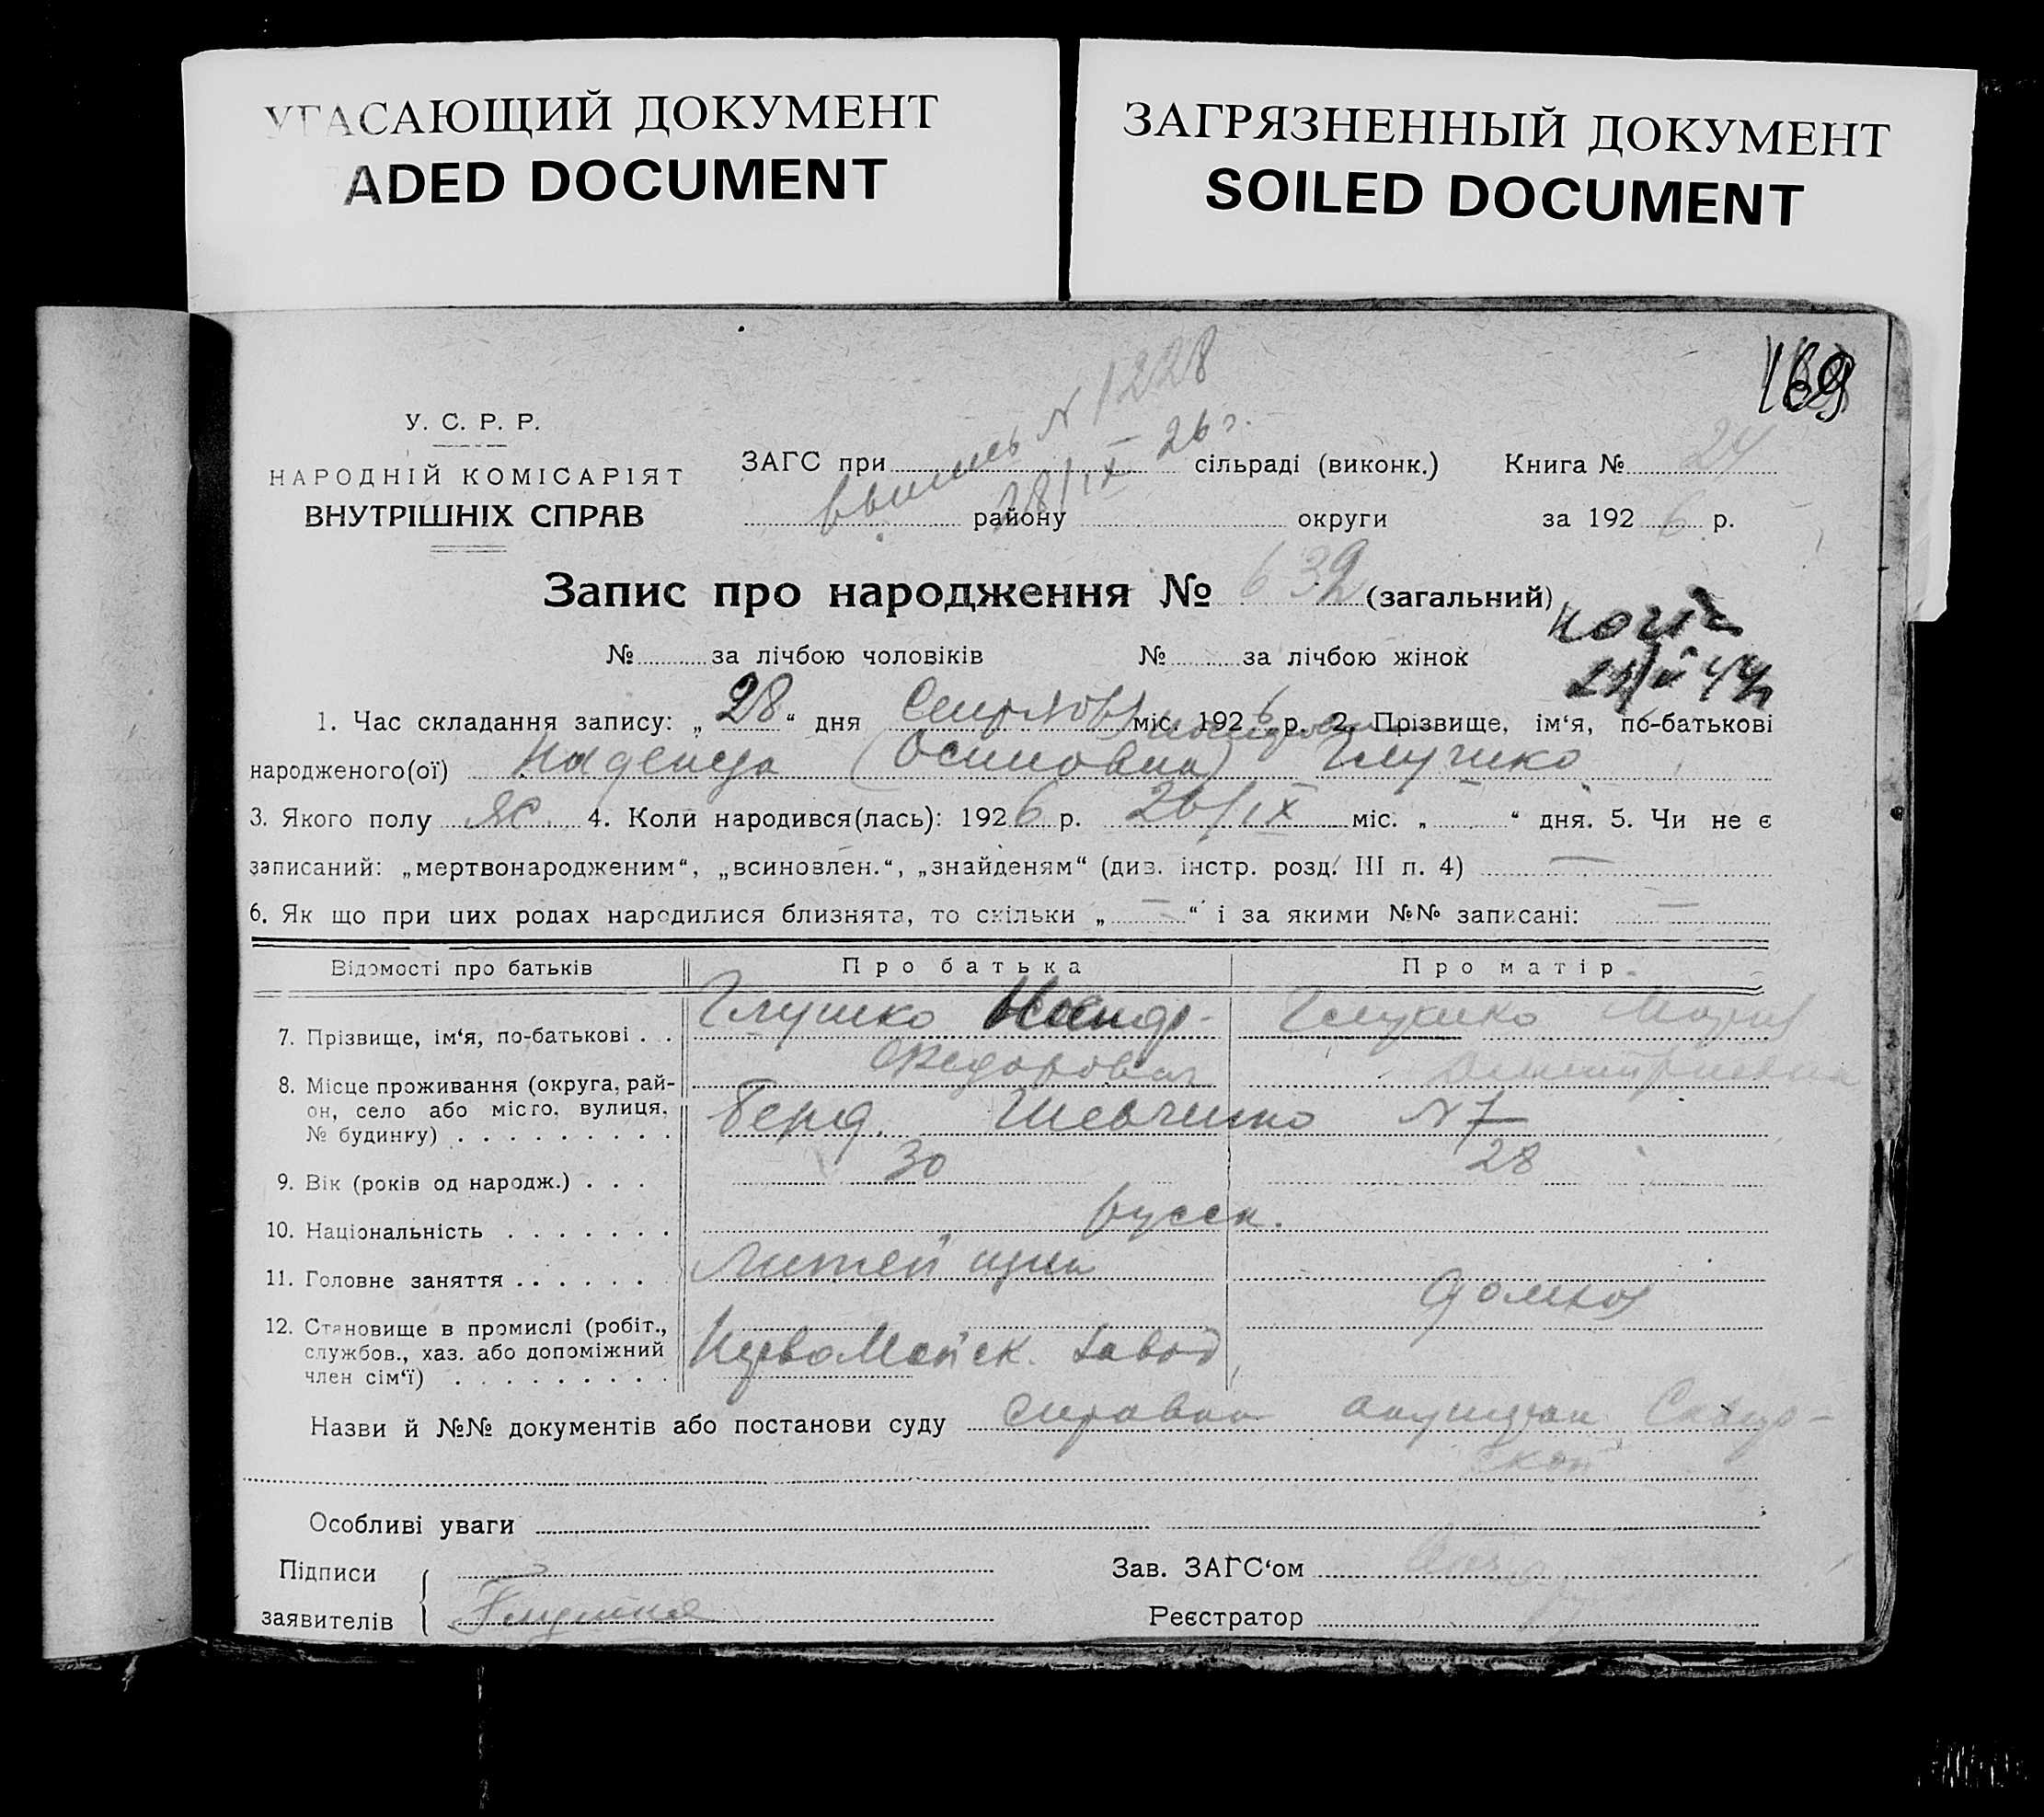 УГАСАЮЩИЙ ДОКУМЕНТ
ADED DOCUMENT
ЗАГРЯЗНЕННЫЙ ДОКУМЕНТ
SOILED DOCUMENT
169
N 1228
28/IX 26 г.
У. С. Р. Р.
НАРОДНІЙ КОМІСАРІЯТ
ВНУТРІШНІХ СПРАВ
ЗАГС при сільраді (виконк.) Книга № 24
району округи за 1926 р.
Запис про народження № 639 (загальний)
№ за лічбою чоловіків № за лічбою жінок
1. Час складання запису: „28“ дня міс. 1926 р. 2. Прізвище, ім‘я, по-батькові
народженого(ої) Надежда (Осиповна) Глушко
3. Якого полу ж. 4. Коли народився(лась): 1926 р. 26/IX міс. „ “ дня. 5. Чи не є
записаний: „мертвонародженим“, „всиновлен.“, „знайденям“ (див. інстр. розд. III п. 4) —
6. Як що при цих родах народилися близнята, то скільки „ — “ і за якими №№ записані: —
Відомості про батьків Про батька Про матір
7. Прізвище, ім‘я, по-батькові . . Глушко Глушко Мария
Федорович Дмитриевна
8. Місце проживання (округа, рай-
он, село або місто, вулиця,
№ будинку) . . . . . . . . . Берд. Шевченко N 7
9. Вік (років од народж.) . . . 30 28
10. Національність . . . . . . . русск.
11. Головне заняття . . . . . . литейщик домхоз
12. Становище в промислі (робіт.,
службов., хаз. або допоміжний
член сім‘ї) . . . . . . . . . Первомайск. завод
Назви й №№ документів або постанови суду справка
Особливі уваги
Підписи
заявителів Глушко
Зав. ЗАГС‘ом
Реєстратор